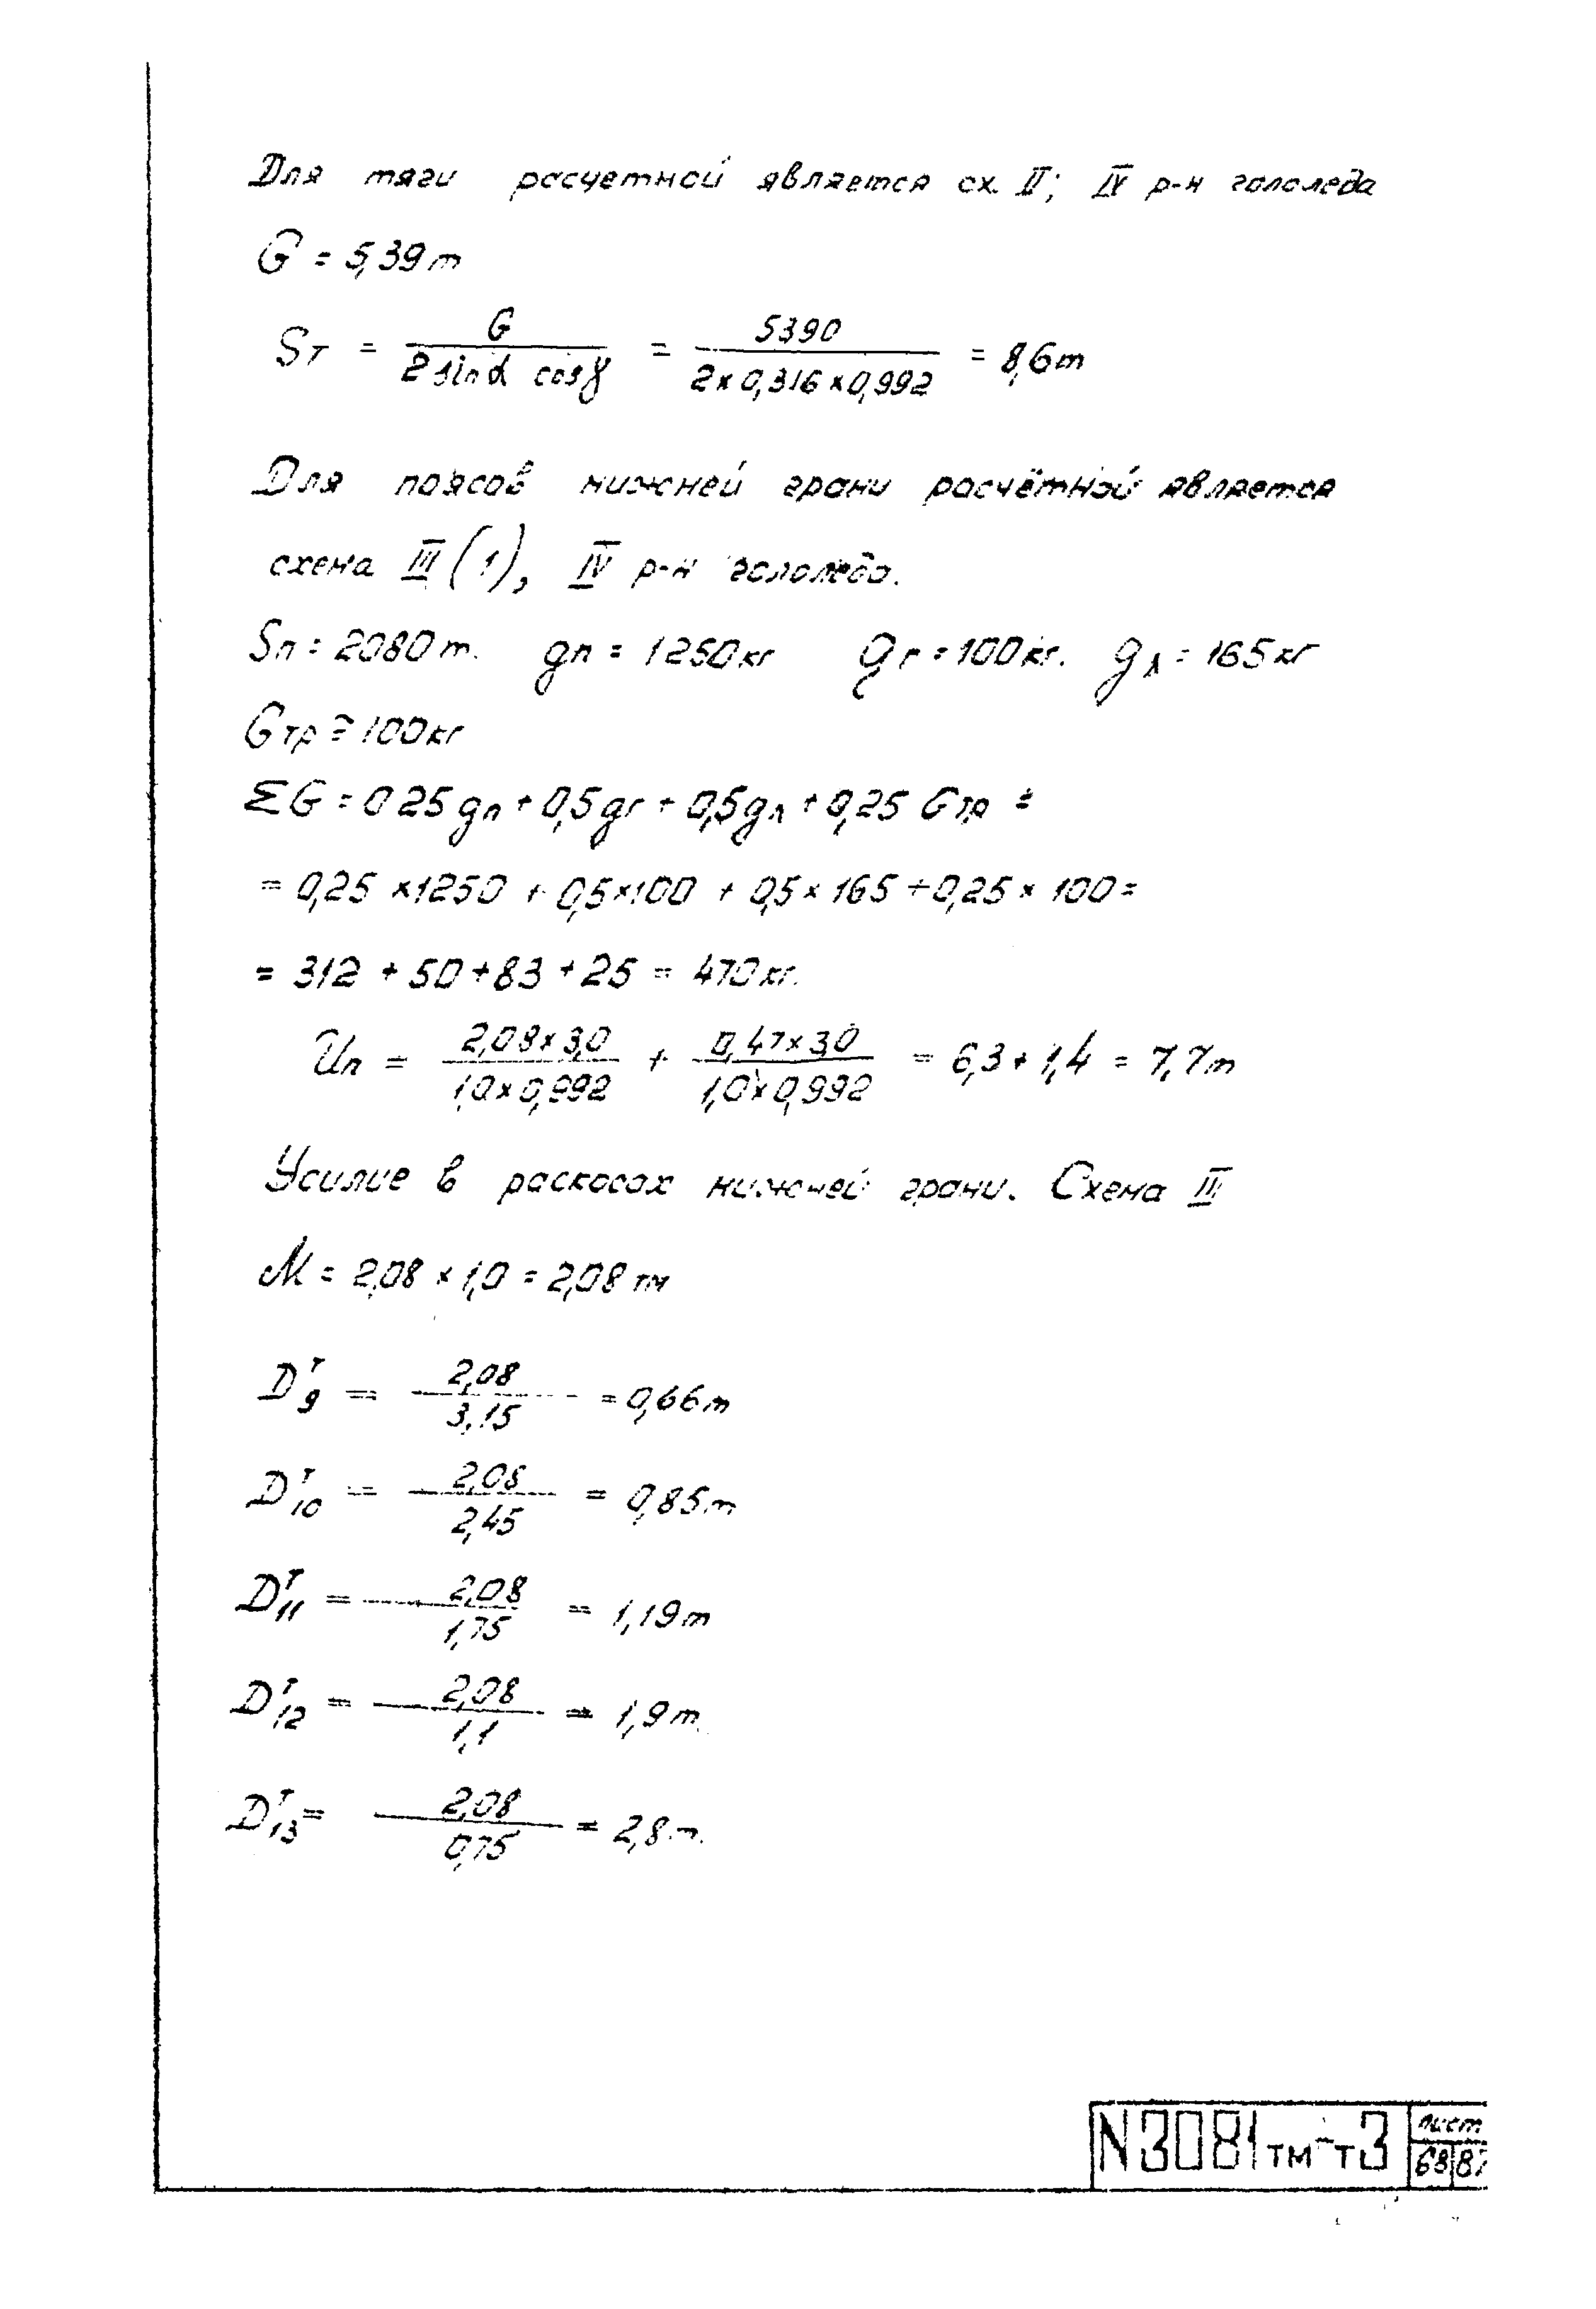 Для тяги расчетной является сх. II; IV р-н гололеда
G = 5,39 т
Sт = G / (2 sin α cos γ) = 5390 / (2 × 0,316 × 0,992) = 8,6 т
Для поясов нижней грани расчётной является
схема III (1), IV р-н гололеда.
Sп = 2080 т. gп = 1250 кг gг = 100 кг. gл = 165 кг
Gтр ≅ 100 кг
ΣG = 0 25 gп + 0,5 gг + 0,5 gл + 0,25 Gтр =
= 0,25 × 1250 + 0,5 × 100 + 0,5 × 165 + 0,25 × 100 =
= 312 + 50 + 83 + 25 = 470 кг.
Uп = 2,08 × 3,0 / (1,0 × 0,992) + 0,47 × 3,0 / (1,0 × 0,992) = 6,3 + 1,4 = 7,7 т
Усилие в раскосах нижней грани. Схема III
M = 2,08 × 1,0 = 2,08 тм
D₉ᵀ = 2,08 / 3,15 = 0,66 т
D₁₀ᵀ = 2,08 / 2,45 = 0,85 т
D₁₁ᵀ = 2,08 / 1,75 = 1,19 т
D₁₂ᵀ = 2,08 / 1,1 = 1,9 т.
D₁₃ᵀ = 2,08 / 0,75 = 2,8 т.
N 3081 тм-т3 лист
68 87